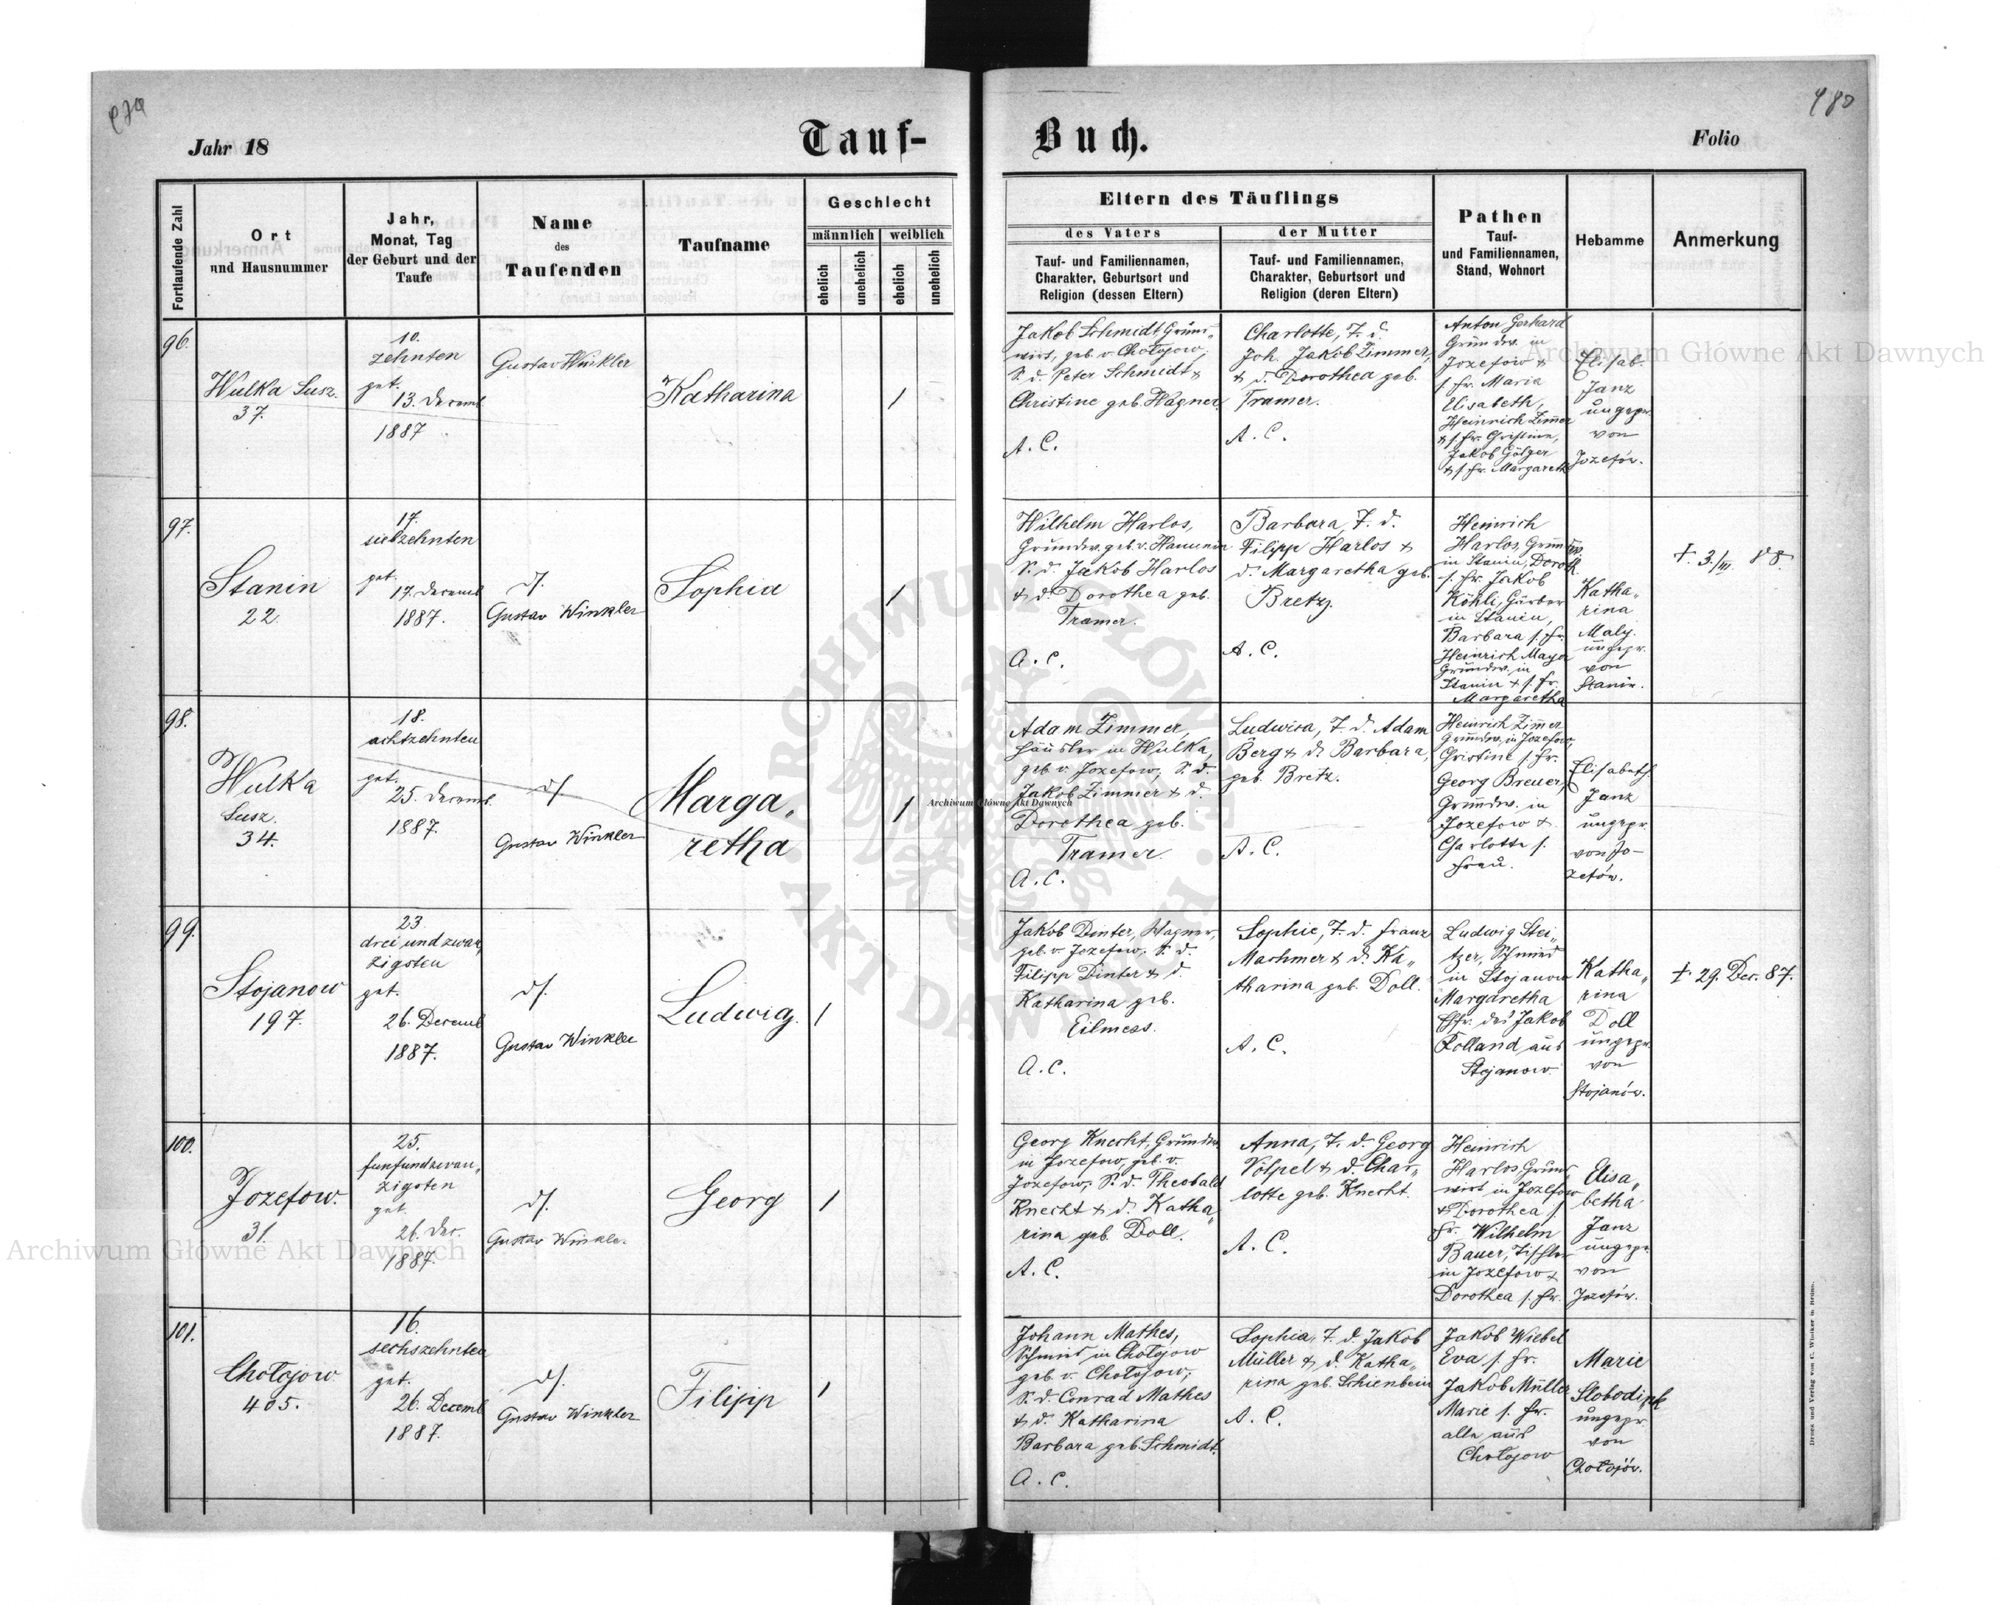 479
480
Jahr 18
Tauf-
Buch.
Folio
Fortlaufende Zahl
Ort
und Hausnummer
Jahr,
Monat, Tag
der Geburt und der
Taufe
Name
des
Taufenden
Taufname
Geschlecht
männlich
weiblich
ehelich
unehelich
ehelich
unehelich
Eltern des Täuflings
des Vaters
Tauf- und Familiennamen,
Charakter, Geburtsort und
Religion (dessen Eltern)
der Mutter
Tauf- und Familiennamen,
Charakter, Geburtsort und
Religion (deren Eltern)
Pathen
Tauf-
und Familiennamen,
Stand, Wohnort
Hebamme
Anmerkung
96.
Wulka Susz.
37.
10.
zehnten
get.
13. Decemb
1887
Gustav Winkler
Katharina
1
Jakob Schmidt, Grund-
wirt, geb. v. Chołojow,
S. d. Peter Schmidt &
Christine geb. Wagner.
A. C.
Charlotte, T. d.
Joh. Jakob Zimmer,
& d. Dorothea geb.
Tramer.
A. C.
Anton Gerhard
Grundw. in
Jozefow &
s. Fr. Maria
Elisabeth,
Heinrich Zimmer
& s. Fr. Christine,
Jakob
& s. Fr. Margareth
Elisab.
Janz
ungepr.
von
Jozefów.
97.
Stanin
22.
17.
siebzehnten
get.
17. Decemb
1887.
d.
Gustav Winkler
Sophia
1
Wilhelm Harlos,
Grundw. geb. v. Hanunin
S. d. Jakob Harlos
& d. Dorothea geb.
Tramer.
A. C.
Barbara, T. d.
Filipp Harlos &
d. Margaretha geb.
Bretz.
A. C.
Heinrich
Harlos, Grundw.
in Stanin, Doroth.
s. Fr. Jakob
Köhli, Gärber
in Stanin,
Barbara s. Fr.
Heinrich Mayer
Grundw. in
Stanin & s. Fr.
Margaretha
Katha-
rina
Maly.
ungepr.
von
Stanin.
† 3./III. 88.
98.
Wulka
Susz.
34.
18.
achtzehnten
get.
25. Decemb.
1887.
d.
Gustav Winkler
Marga-
retha
1
Adam Zimmer,
Häusler in Wulka,
geb. v. Jozefow, S. d.
Jakob Zimmer & d.
Dorothea geb.
Tramer.
A. C.
Ludwisa, T. d. Adam
Berg & d. Barbara,
geb. Bretz.
A. C.
Heinrich Zimmer
Grundw. in Jozefow,
Christine s. Fr.
Georg Breuer,
Grundw. in
Jozefow &
Charlotte s.
Frau.
Elisabeth
Janz
ungepr.
von Jo-
zefów.
99.
Stojanow
197.
23
drei und zwan-
zigsten
get.
26. Decemb
1887.
d.
Gustav Winkler
Ludwig.
1
Jakob Dinter, Wagner,
geb. v. Jozefow, S. d.
Filipp Dinter & d.
Katharina geb.
Eilmess.
A. C.
Sophie, T. d. Franz
Machmer & d. Ka-
tharina geb. Doll.
A. C.
Ludwig Stei-
tzer, Schmied
in Stojanow
Margaretha
Ehfr. des Jakob
Rolland aus
Stojanow.
Katha-
rina
Doll
ungepr.
von
Stojanów.
† 29. Dec. 87.
100.
Jozefow.
31.
25.
funfundzwan-
zigsten
get.
26. Dec.
1887.
d.
Gustav Winkler
Georg
1
Georg Knecht, Grundw.
in Jozefow, geb. v.
Jozefow, S. d. Theobald
Knecht & d. Katha-
rina geb. Doll.
A. C.
Anna, T. d. Georg
Völpel & d. Char-
lotte geb. Knecht.
A. C.
Heinrich
Harlos Grund-
wirt in Jozefow
& Dorothea s.
Fr. Wilhelm
Bauer, Tischler
in Jozefow &
Dorothea s. Fr.
Elisa-
betha
Janz
ungepr.
von
Jozefów.
101.
Chołojow
405.
16.
sechszehnten
get.
26. Decemb
1887.
d.
Gustav Winkler
Filipp
1
Johann Mathes,
Schmied in Chołojow
geb. v. Chołojow,
S. d. Conrad Mathes
& d. Katharina
Barbara geb. Schmidt.
A. C.
Sophia, T. d. Jakob
Müller & d. Katha-
rina geb. Schienbein
A. C.
Jakob Wiebel
Eva s. Fr.
Jakob Müller
Marie s. Fr.
alle aus
Chołojow
Marie
ungepr.
von
Chołojów.
Druck und Verlag von C. Winiker in Brünn.
Archiwum Główne Akt Dawnych
Archiwum Główne Akt Dawnych
Archiwum Główne Akt Dawnych
ARCHIWUM GŁÓWNE AKT DAWNYCH